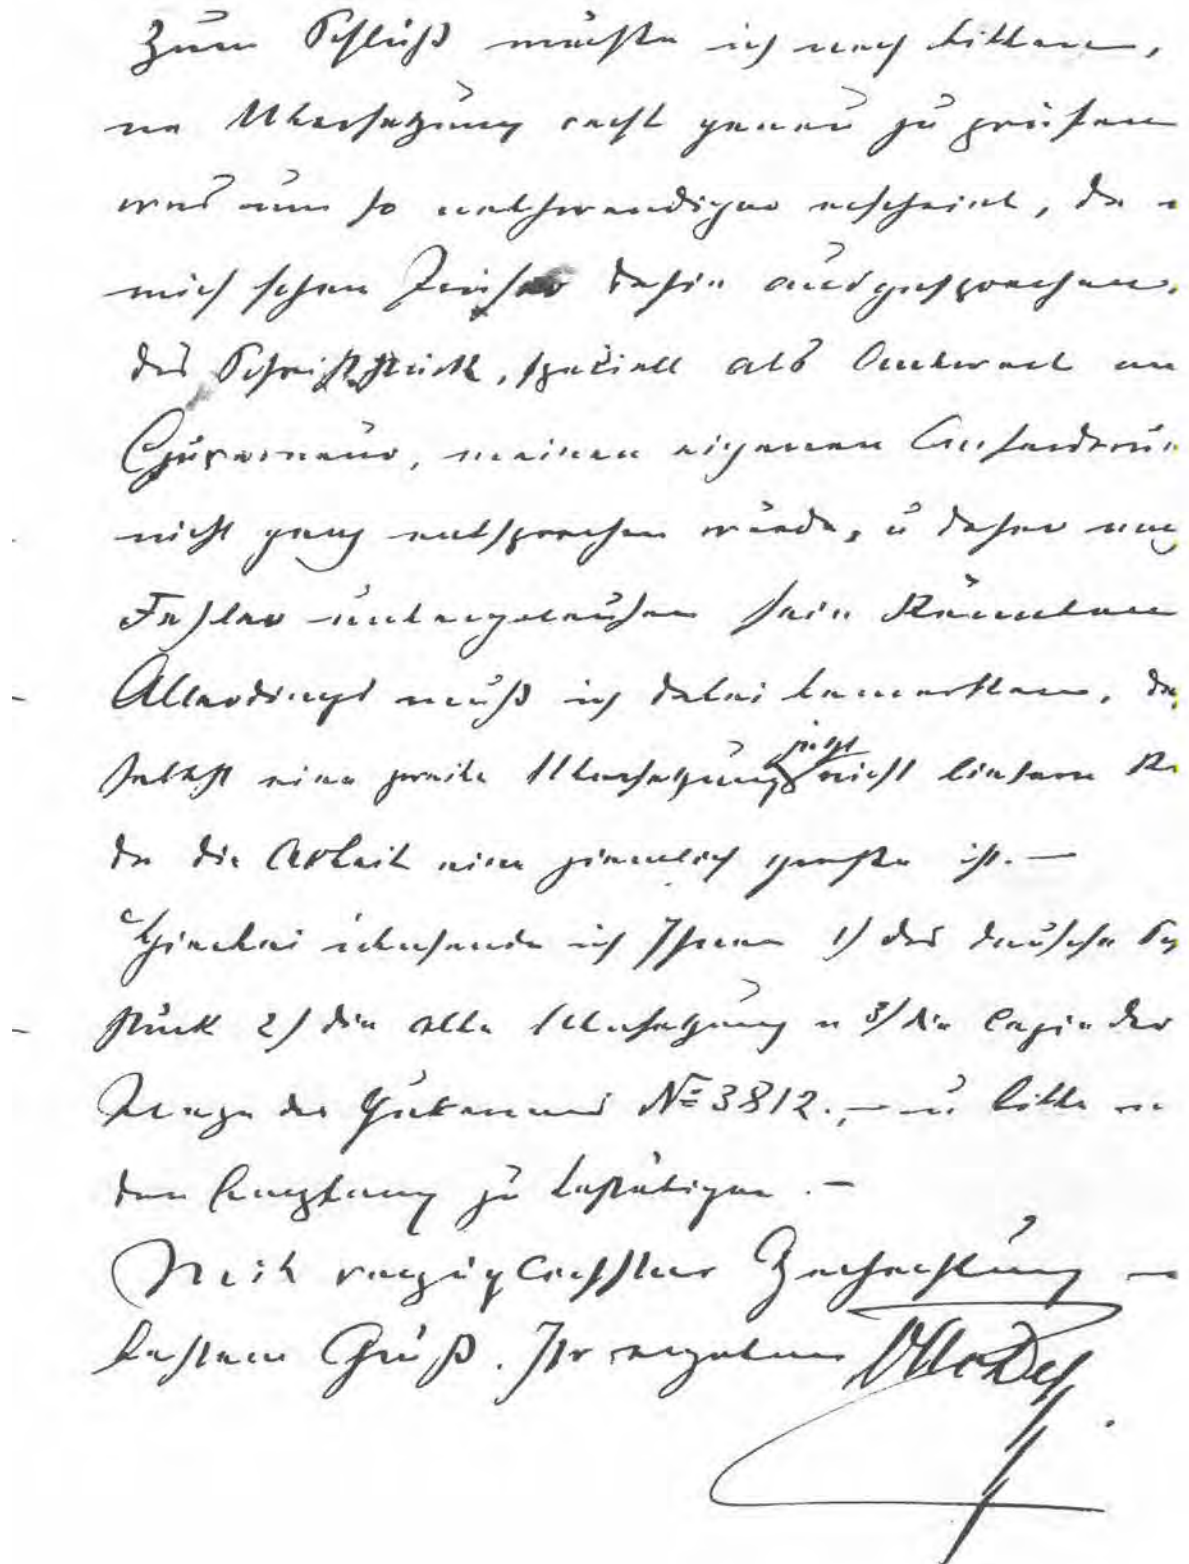 Zum Schluß möchte ich noch bitten,
Übersetzung recht genau zu prüfen
was um so nothwendiger erscheint, da
mich schon früher dahin ausgesprochen,
das Schriftstück, speziell als Antwort an
Guverneur, meinen eigenen
nicht ganz entsprechen würde, u daher
Fehler untergelaufen sein könnten
Allerdings muß ich dabei bemerken,
selbst eine zweite Übersetzung jetzt nicht liefern
da die Arbeit eine ziemlich große ist. —
Hierbei übersende ich Ihnen 1) das deutsche
stück 2) die alte Übersetzung u 3) die Copie der
Frage des Guverneurs No 3812. — u bitte
den Empfang zu bestätigen. —
Mit vorzüglichster Hochachtung
bestem Gruß. Ihr ergebener